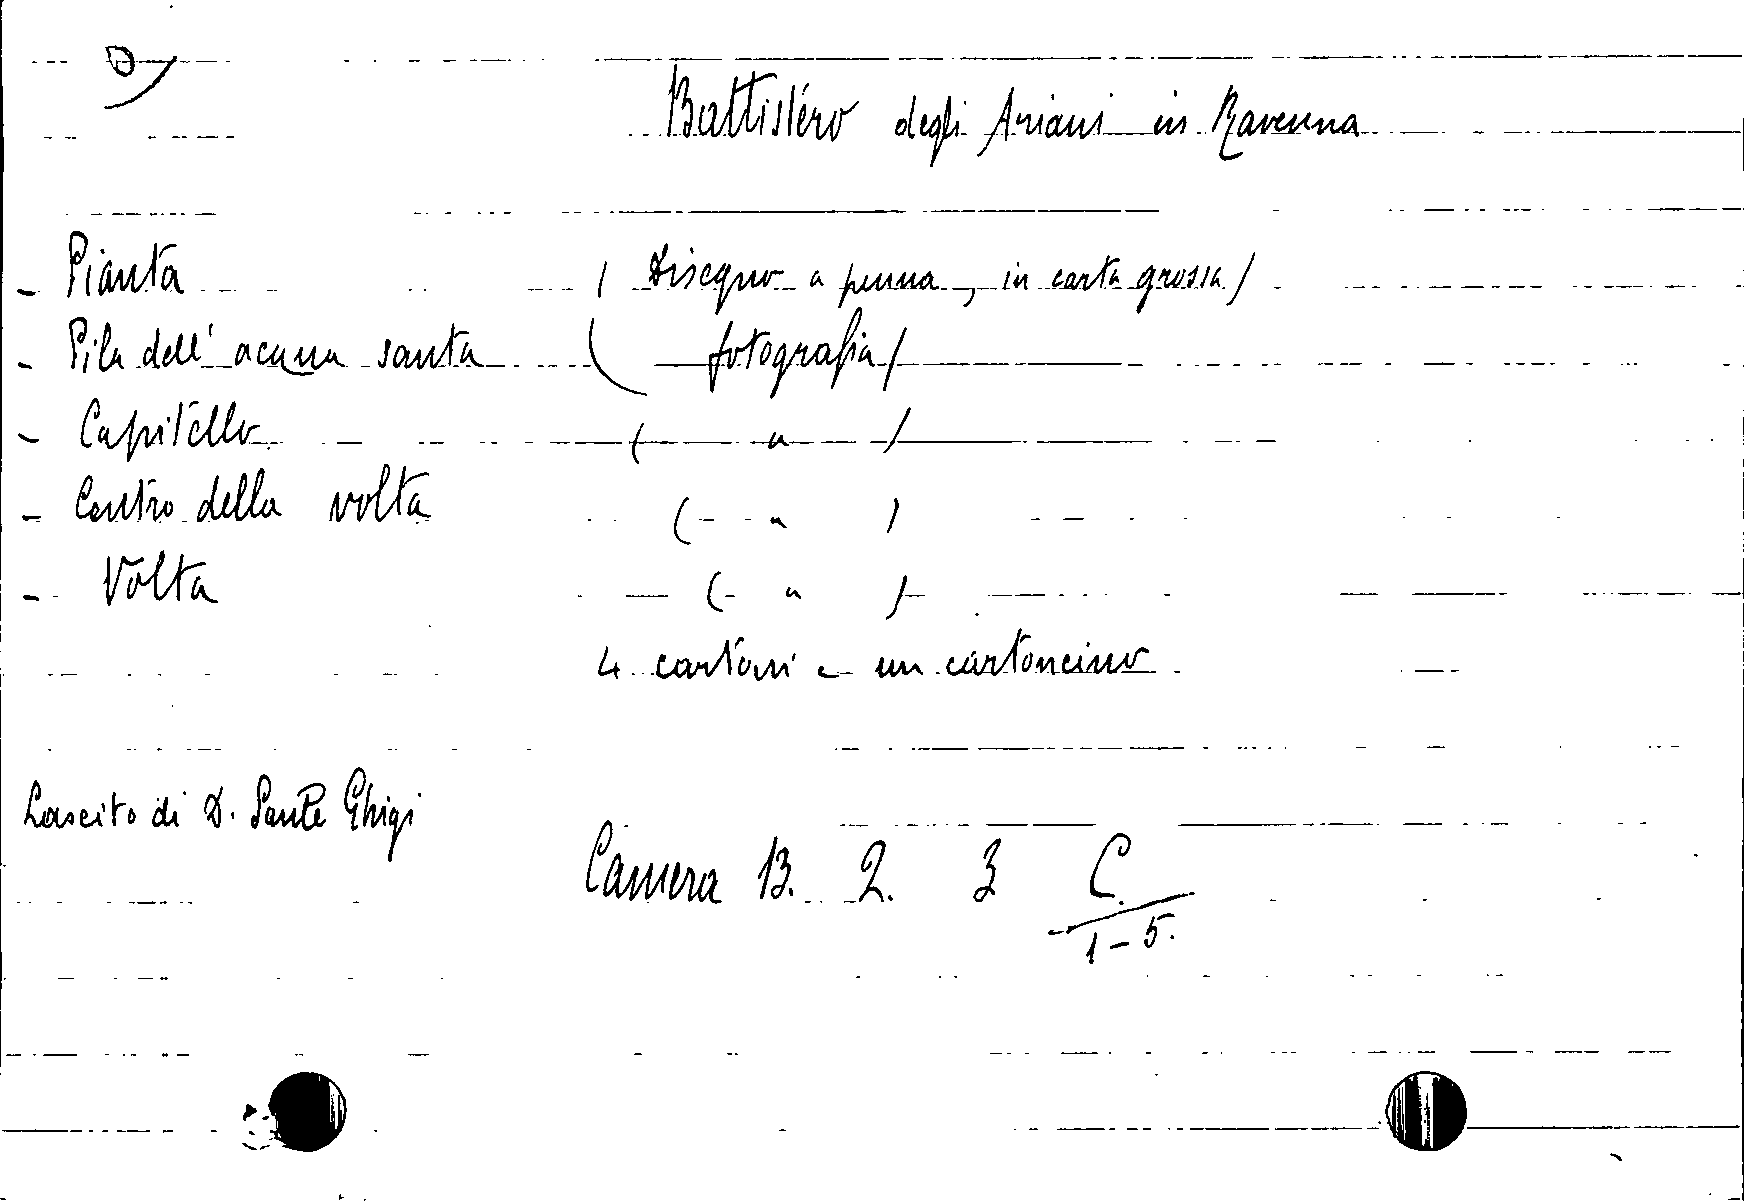 Battistéro degli Ariani in Ravenna
- Pianta ( Disegno a penna, in carta grossa )
- Pila dell' acqua santa ( fotografia )
- Capitello ( " )
- Centro della volta ( " )
- Volta ( " )
4 cartoni e un cartoncino
Lascito di D. Sante Ghigi
Camera B. 2. 3 C.
1-5.